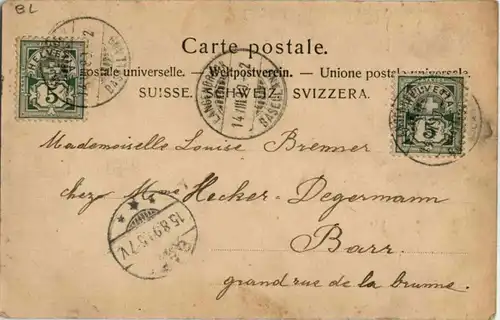 BL
Carte postale.
postale universelle. — Weltpostverein. — Unione postale universale.
SUISSE. SCHWEIZ. SVIZZERA.
HELVETIA
5
HELVETIA
5
LANGENBRUCK
14 VIII
Mademoiselle Louise Brenner
chez Mme Hecker-Degermann
15.8.9
5-7V
Barr.
grand rue de la brume.